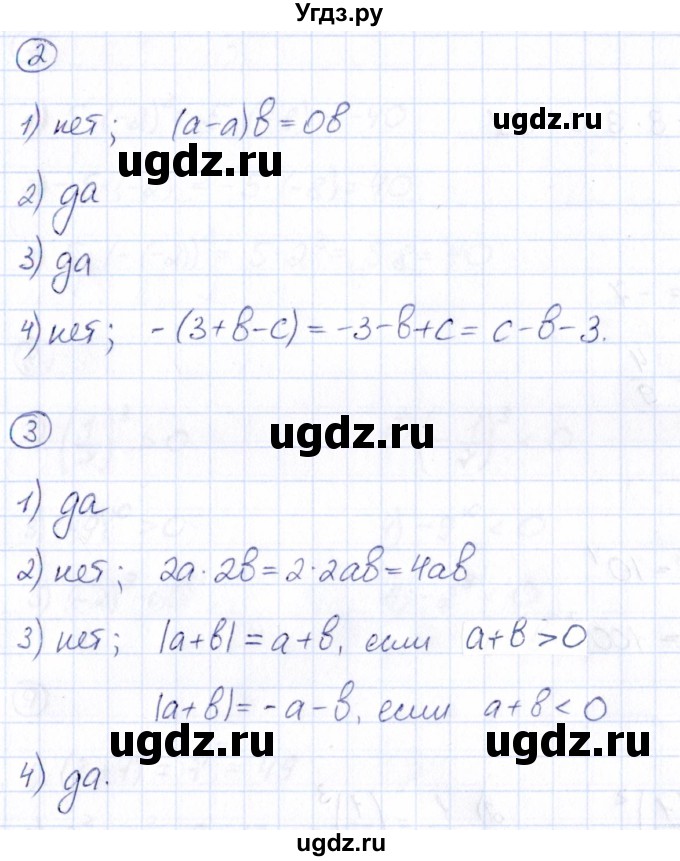 Угдз.ру
2
1) нет; (a-a)в=0в
ugdz.ru
ugdz.ru
2) да
3) да
4) нет; -(3+в-с)=-3-в+с=с-в-3.
3
ugdz.ru
ugdz.ru
1) да
2) нет; 2а·2в=2·2ав=4ав
3) нет; |а+в|=а+в, если а+в>0
|а+в|=-а-в, если а+в<0
ugdz.ru
ugdz.ru
4) да.
ugdz.ru